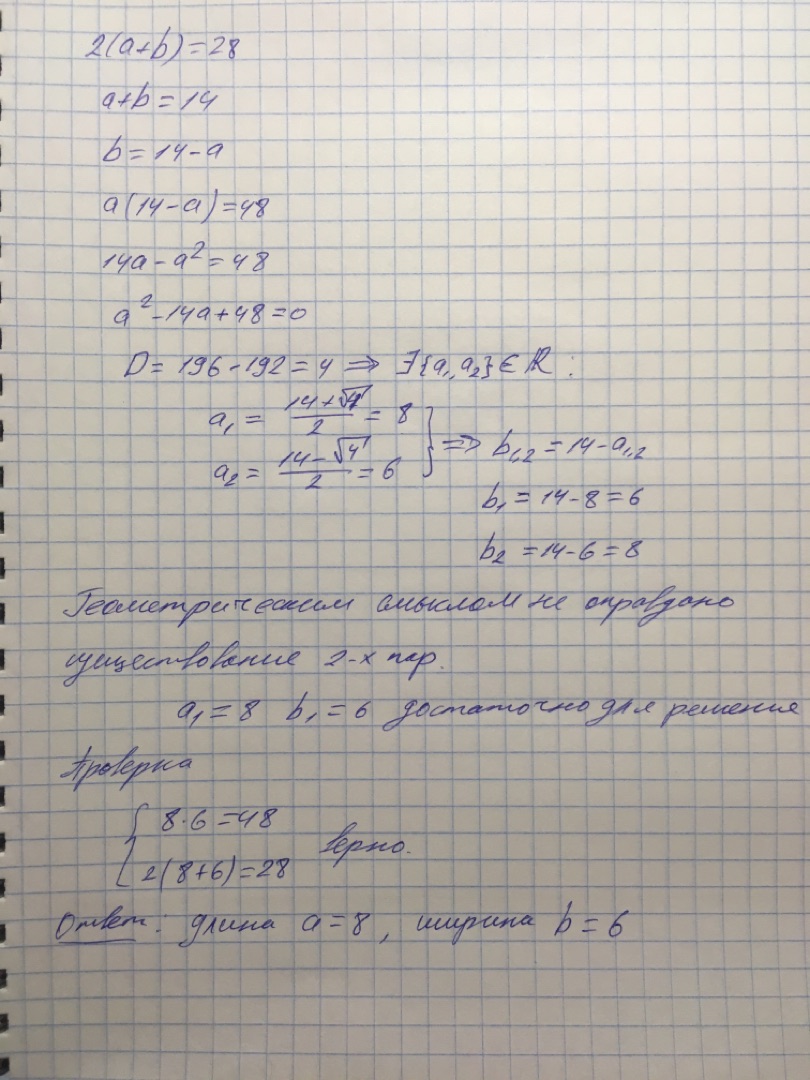 2(a+b)=28
a+b=14
b=14-a
a(14-a)=48
14a-a²=48
a²-14a+48=0
D=196-192=4 ⇒ ∃{a₁,a₂}∈ℝ:
a₁ = (14+√4)/2 = 8
a₂ = (14-√4)/2 = 6 } ⇒ b₁,₂ = 14-a₁,₂
b₁ = 14-8=6
b₂ = 14-6=8
Геометрическим смыслом не оправдано
существование 2-х пар.
a₁=8 b₁=6 достаточно для решения
Проверка
{ 8·6=48
2(8+6)=28 верно.
Ответ: длина a=8, ширина b=6